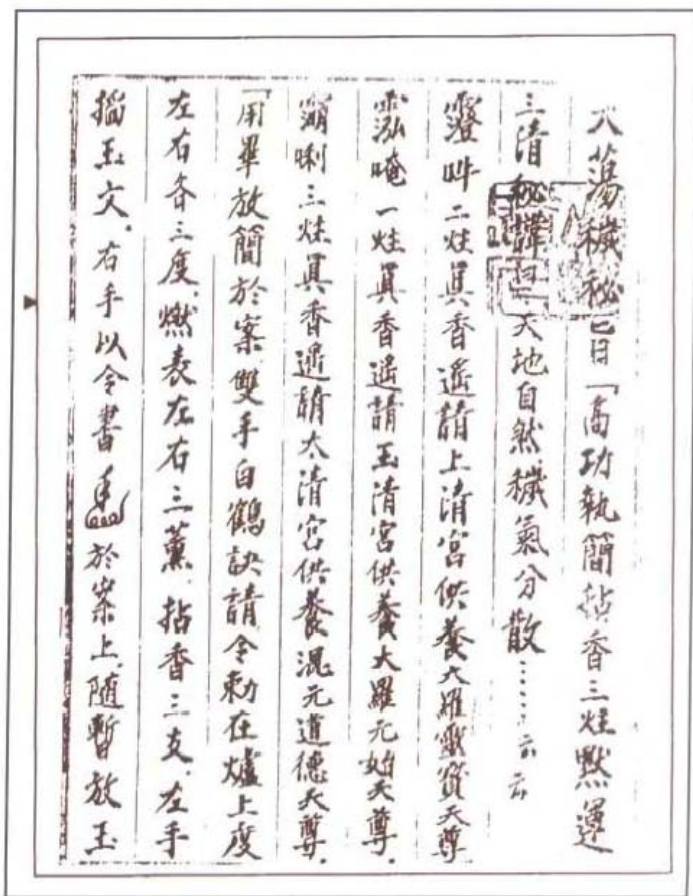 大蕩穢秘　曰「高功執簡拈香三炷默運
三清秘諱曰　天地自然穢氣分散……云云
二炷眞香遥請上清宮供養大羅靈寶天尊
一炷眞香遥請玉清宮供養大羅元始天尊．
三炷眞香遥請太清宮供養混元道德天尊．
「用畢放簡於案雙手白鶴訣請令勅在爐上度
左右各三度．燃表左右三薰．拈香三支．左手
掐玉文．右手以令書　於案上．隨暫放玉